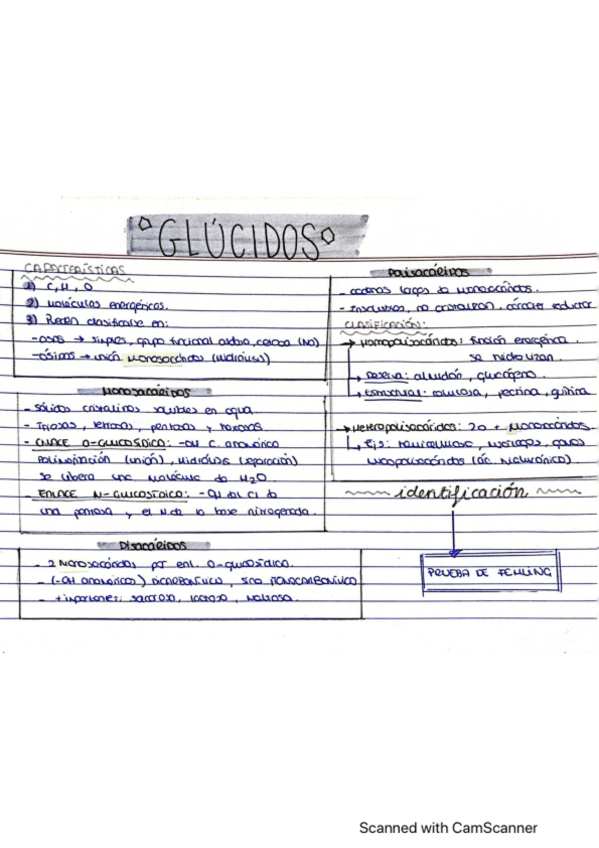 GLÚCIDOS
CARACTERÍSTICAS
1) C, H, O
2) Moléculas energéticas.
3) Pueden clasificarse en:
-osas → simples, grupo funcional aldosa, cetosa (No)
-ósidos → unión Monosacáridos (hidrólisis)
MONOSACÁRIDOS
- sólidos cristalinos solubles en agua.
- Triosas, tetrosas, pentosas y hexosas.
- ENLACE O-GLUCOSÍDICO: -OH C. anomérico
Polimerización (unión), Hidrólisis (separación)
se libera una molécula de H2O.
- ENLACE N-GLUCOSÍDICO: -OH del C1 de
una pentosa, y el N de la base nitrogenada.
DISACÁRIDOS
- 2 Monosacáridos por enl. O-glucosídico.
- (-OH anoméricos) DICARBONÍLICO, sino MONOCARBONÍLICO
- + importantes: sacarosa, lactosa, maltosa.
POLISACÁRIDOS
- cadenas largas de Monosacáridos.
- Insolubles, no cristalizan, carácter reductor
CLASIFICACIÓN:
→ Homopolisacáridos: función energética.
se hidrolizan.
→ Reserva: almidón, glucógeno.
→ Estructural: celulosa, pectina, quitina
→ Heteropolisacáridos: 2 o + Monosacáridos.
↳ Ejs: hemicelulosa, gomas
mucopolisacáridos (ác. hialurónico).
identificación
PRUEBA DE FEHLING
Scanned with CamScanner